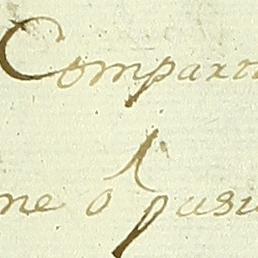 Comparti
ne o pusi